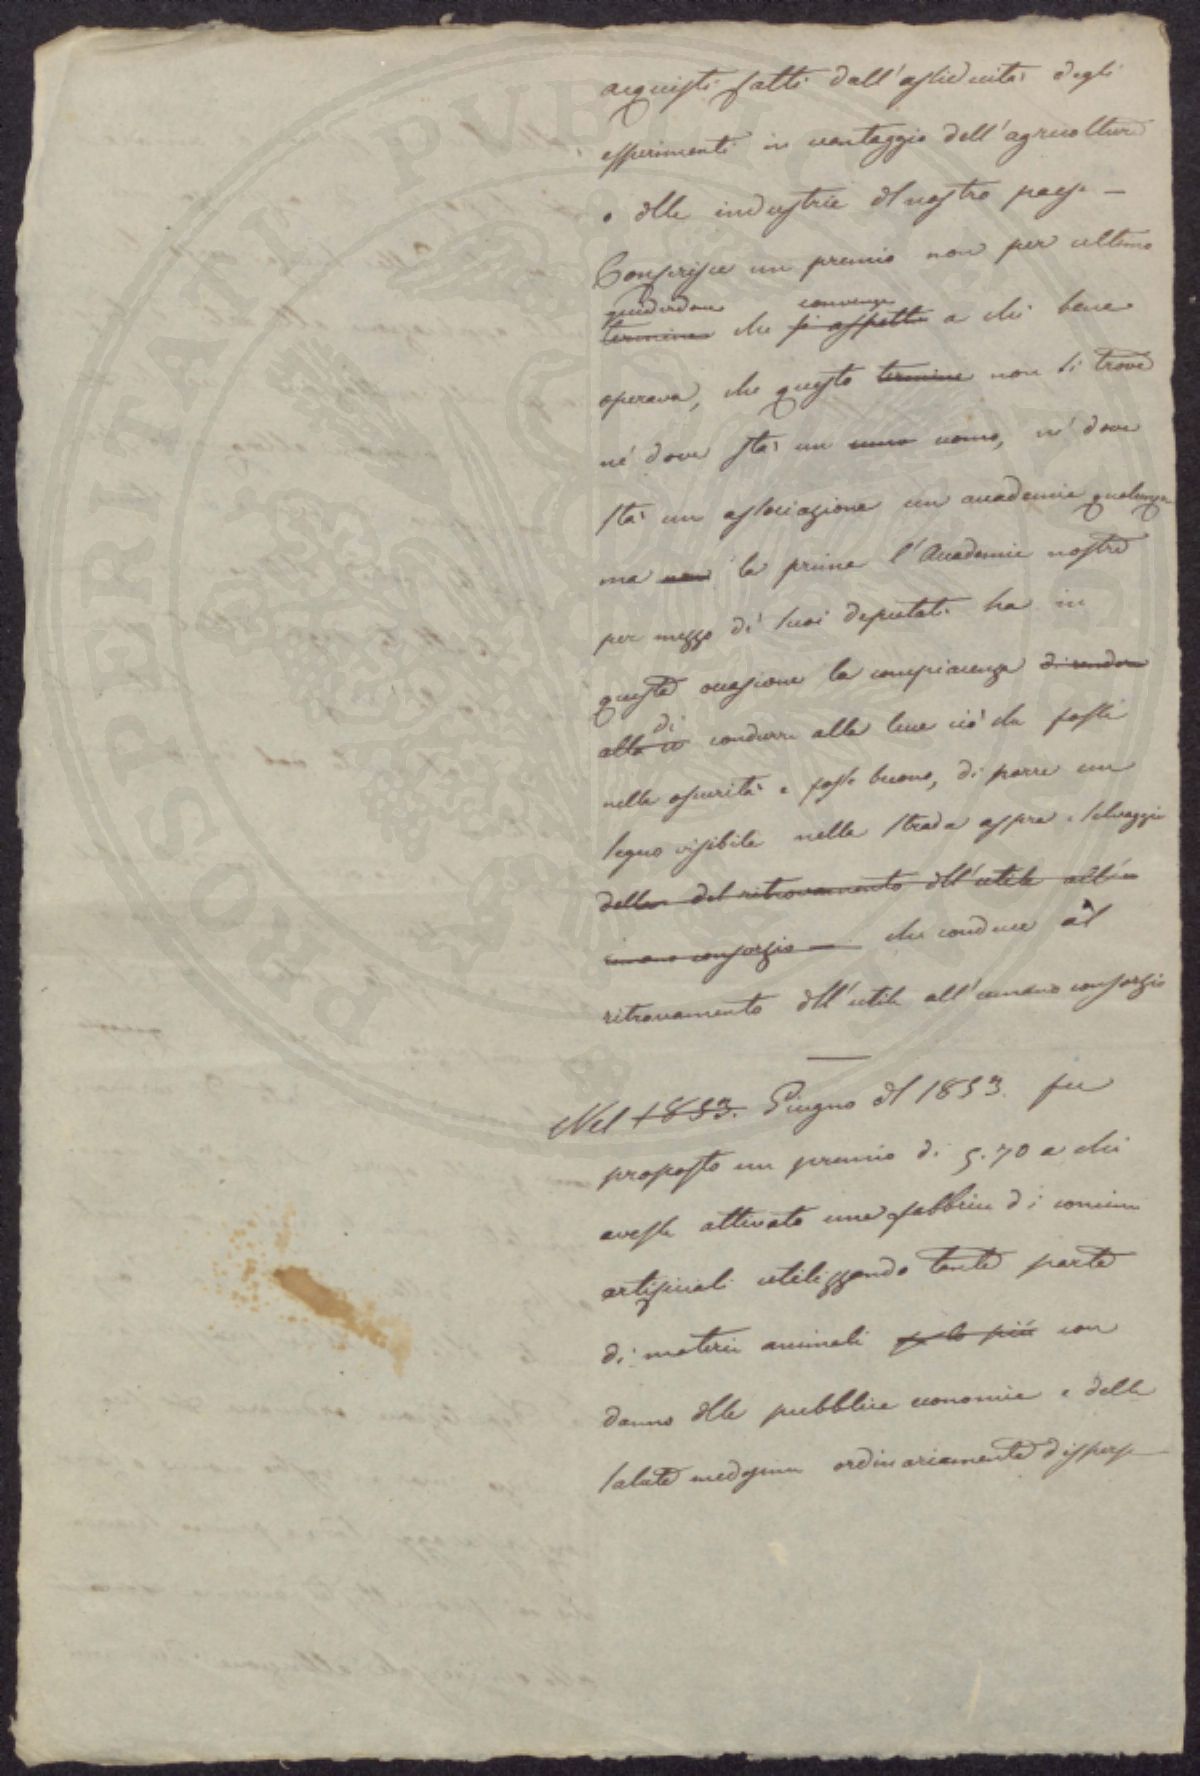 acquisti fatti dall'assiduità degli
esperimenti in vantaggio dell'agricoltura
e delle industrie del nostro paese —
Conferisce un premio non per ultimo
guiderdone convenga
termine che si aspetta a chi bene
operava, che questo termine non si trova
né dove sta' un uomo, né dove
sta' un associazione un accademia qualunque
ma non la prima l'Accademia nostra
per mezzo di' suoi deputati ha in
questa occasione la compiacenza di rendere
di
alla condurre alla luce ciò che fosse
nella oscurità e fosse buono, di porre un
segno visibile nella strada aspra e selvaggia
della del ritrovamento dell'utile all'u
umano consorzio — che conduce al
ritrovamento dell'utile all'umano consorzio
Nel 1853. Giugno del 1853. fu
proposto un premio di 70 a chi
avesse attivato una fabbrica di concimi
artificiali utilizzando tanta parte
di materie animali per lo più con
danno della pubblica economia e della
salute medesima ordinariamente disperse
POSPERITATI PVBLICAE